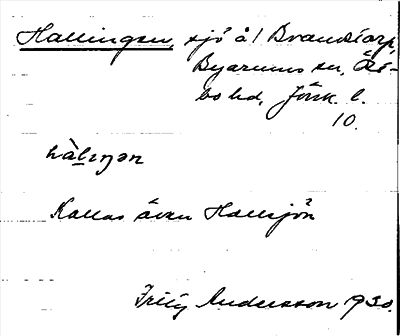 Hallingen, sjö å / Brandstorp,
Byarums sn, Öst-
bo hd, Jönk. l.
10.
hàlıŋən
Kallas även Hallsjön
Fritz Andersson 930.